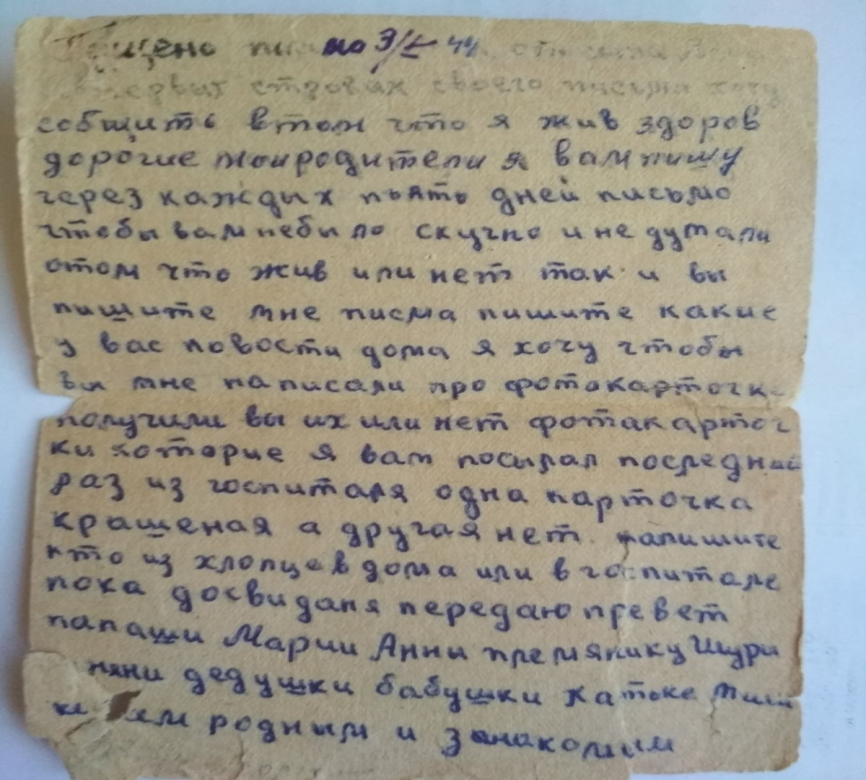 пущено письмо 9/I 44. от сына
первых строках своего письма хочу
собщить втом что я жив здоров
дорогие моиродители я вампишу
через каждых пьять дней письмо
чтобы вамнебыло скучно и не думали
отом что жив или нет так и вы
пишите мне писма пишите какие
у вас новости дома я хочу чтобы
вы мне написали про фотокарточки
получили вы их или нет фотакарточ
ки которие я вам посылал последний
раз из госпиталя одна карточка
крашеная а другая нет. напишите
кто из хлопцев дома или в госпитале
пока досвиданя передаю превет
папаши Марии Анны племянику Шури
няни дедушки бабушки Катьке
родным и знакомим